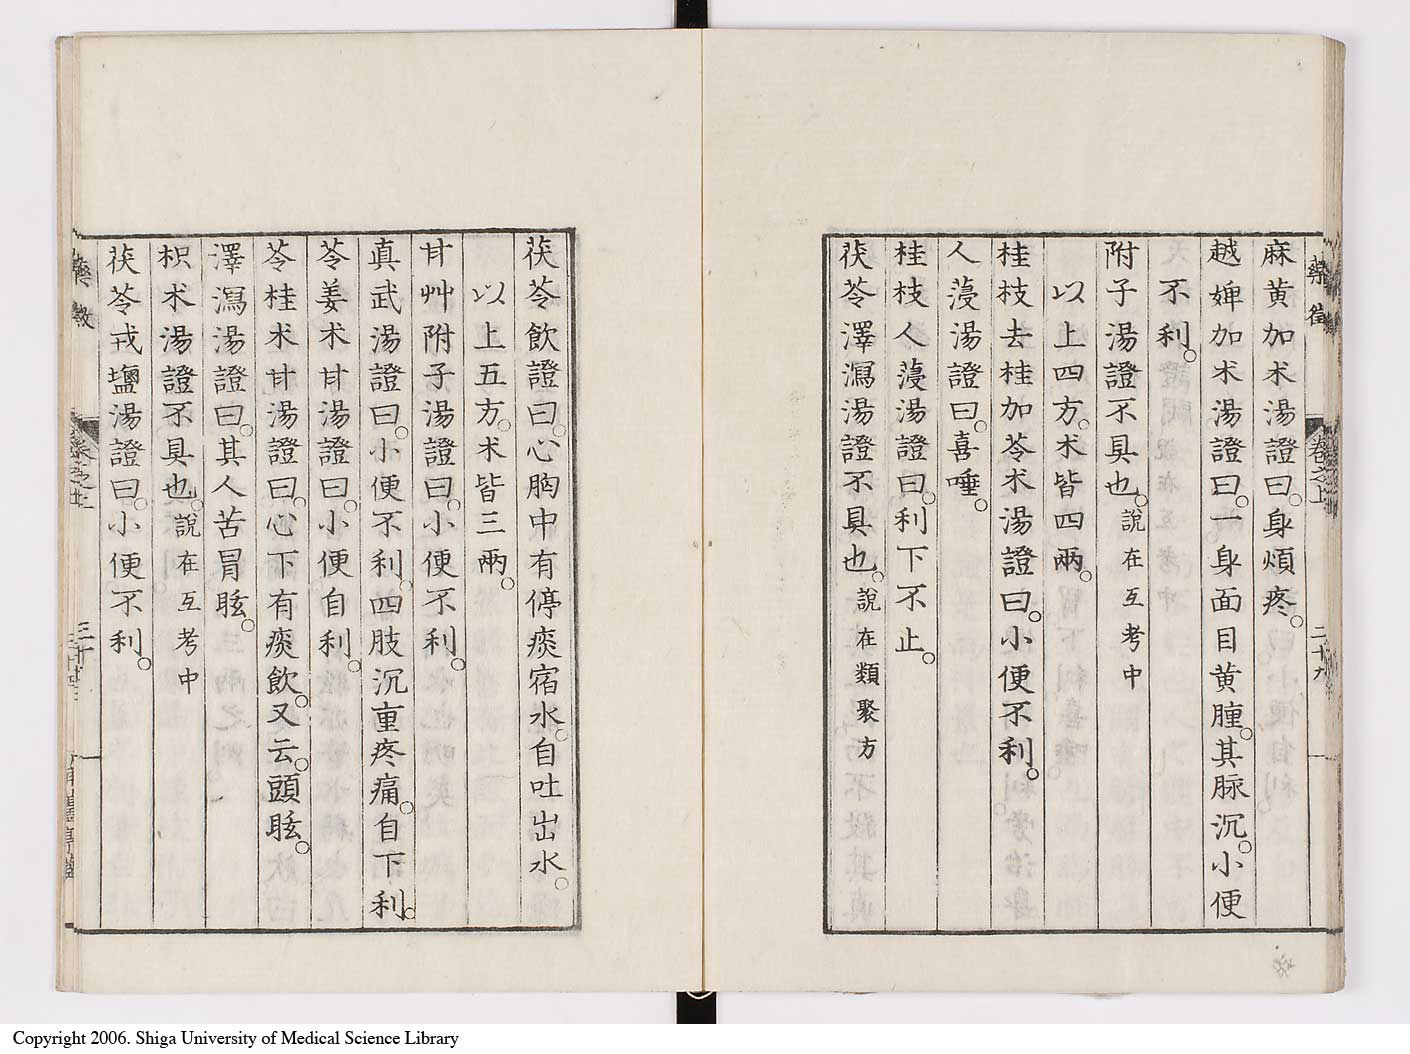 麻黄加朮湯證曰。身煩疼。
越婢加朮湯證曰。一身面目黄腫。其脉沉。小便
不利。
附子湯證不具也。説在互考中
以上四方。朮皆四兩。
桂枝去桂加苓朮湯證曰。小便不利。
人葠湯證曰。喜唾。
桂枝人葠湯證曰。利下不止。
茯苓澤瀉湯證不具也。説在類聚方
茯苓飲證曰。心胸中有停痰宿水。自吐出水。
以上五方。朮皆三兩。
甘艸附子湯證曰。小便不利。
真武湯證曰。小便不利。四肢沉重疼痛。自下利。
苓姜朮甘湯證曰。小便自利。
苓桂朮甘湯證曰。心下有痰飲。又云。頭眩。
澤瀉湯證曰。其人苦冒眩。
枳朮湯證不具也。説在互考中
茯苓戎鹽湯證曰。小便不利。
卷之上
二十九
Copyright 2006. Shiga University of Medical Science Library